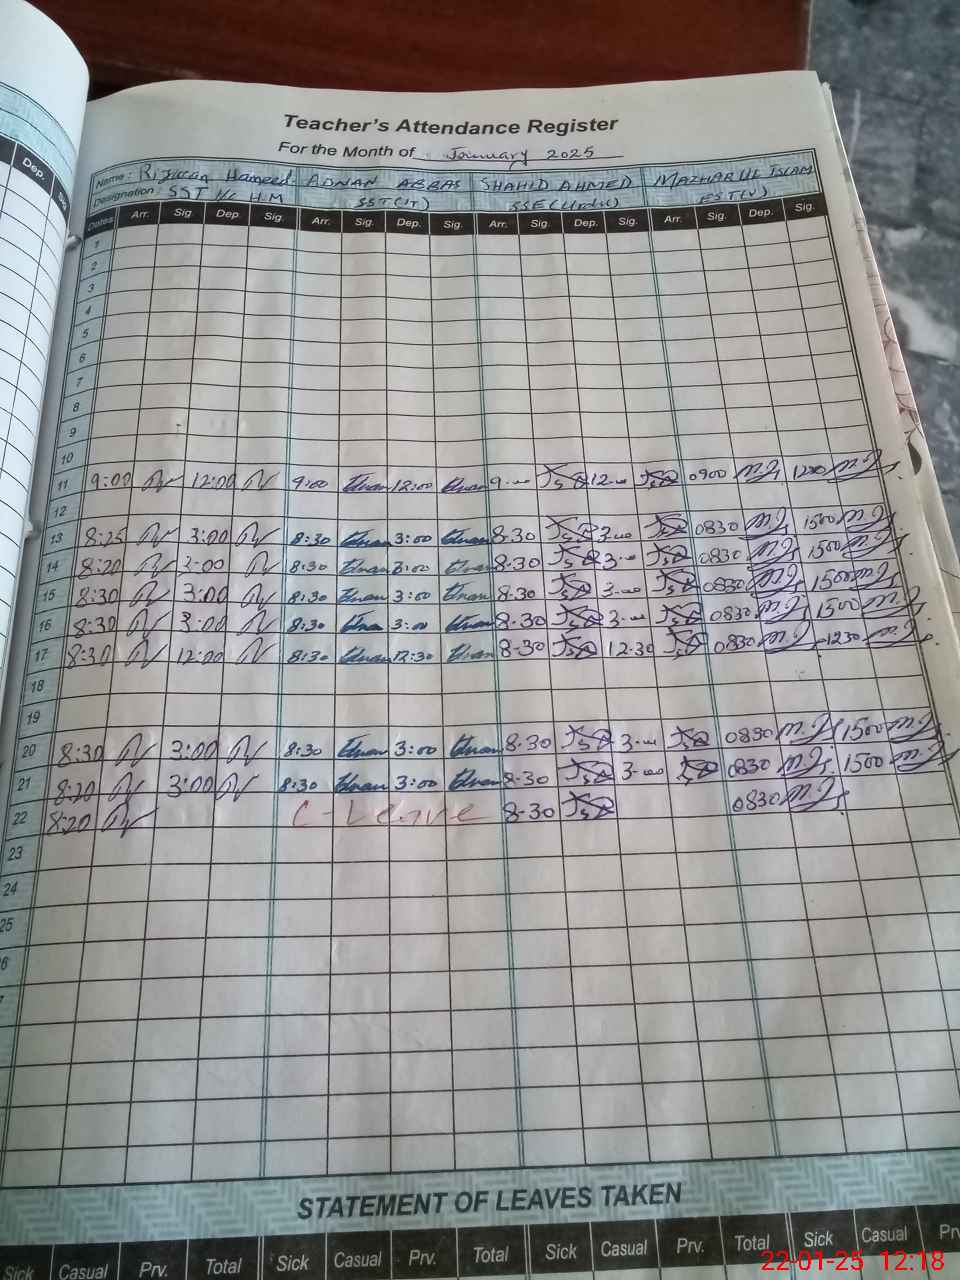 Teacher's Attendance Register
For the Month of January 2025
Dep.
Name : Rizwan Hameed ADNAN ABBAS SHAHID AHMED MAZHAR UL ISLAM
Designation : SST I/C HM SST(IT) SSE(Urdu) EST(V)
Dates Arr. Sig. Dep. Sig. Arr. Sig. Dep. Sig. Arr. Sig. Dep. Sig. Arr. Sig. Dep. Sig.
1
2
3
4
5
6
7
8
9
10
11 9:00 12:00 9:00 Adnan 12:00 Adnan 9-00 12-00 0900 M.I 1200 M.I
12
13 8:25 3:00 8:30 Adnan 3:00 Adnan 8-30 3-00 0830 M.I 1500 M.I
14 8:20 3:00 8:30 Adnan 3:00 Adnan 8-30 3-00 0830 M.I 1500 M.I
15 8:30 3:00 8:30 Adnan 3:00 Adnan 8-30 3-00 0830 M.I 1500 M.I
16 8:30 3:00 8:30 Adnan 3:00 Adnan 8-30 3-00 0830 M.I 1500 M.I
17 8:30 12:00 8:30 Adnan 12:30 Adnan 8-30 12-30 0830 M.I 1230 M.I
18
19
20 8:30 3:00 8:30 Adnan 3:00 Adnan 8-30 3-00 0830 M.I 1500 M.I
21 8:20 3:00 8:30 Adnan 3:00 Adnan 8-30 3-00 0830 M.I 1500 M.I
22 8:20 C-Leave 8-30 0830 M.I
23
24
25
6
7
STATEMENT OF LEAVES TAKEN
Sick Casual Prv. Total Sick Casual Prv. Total Sick Casual Prv. Total Sick Casual Prv.
22-01-25 12:18